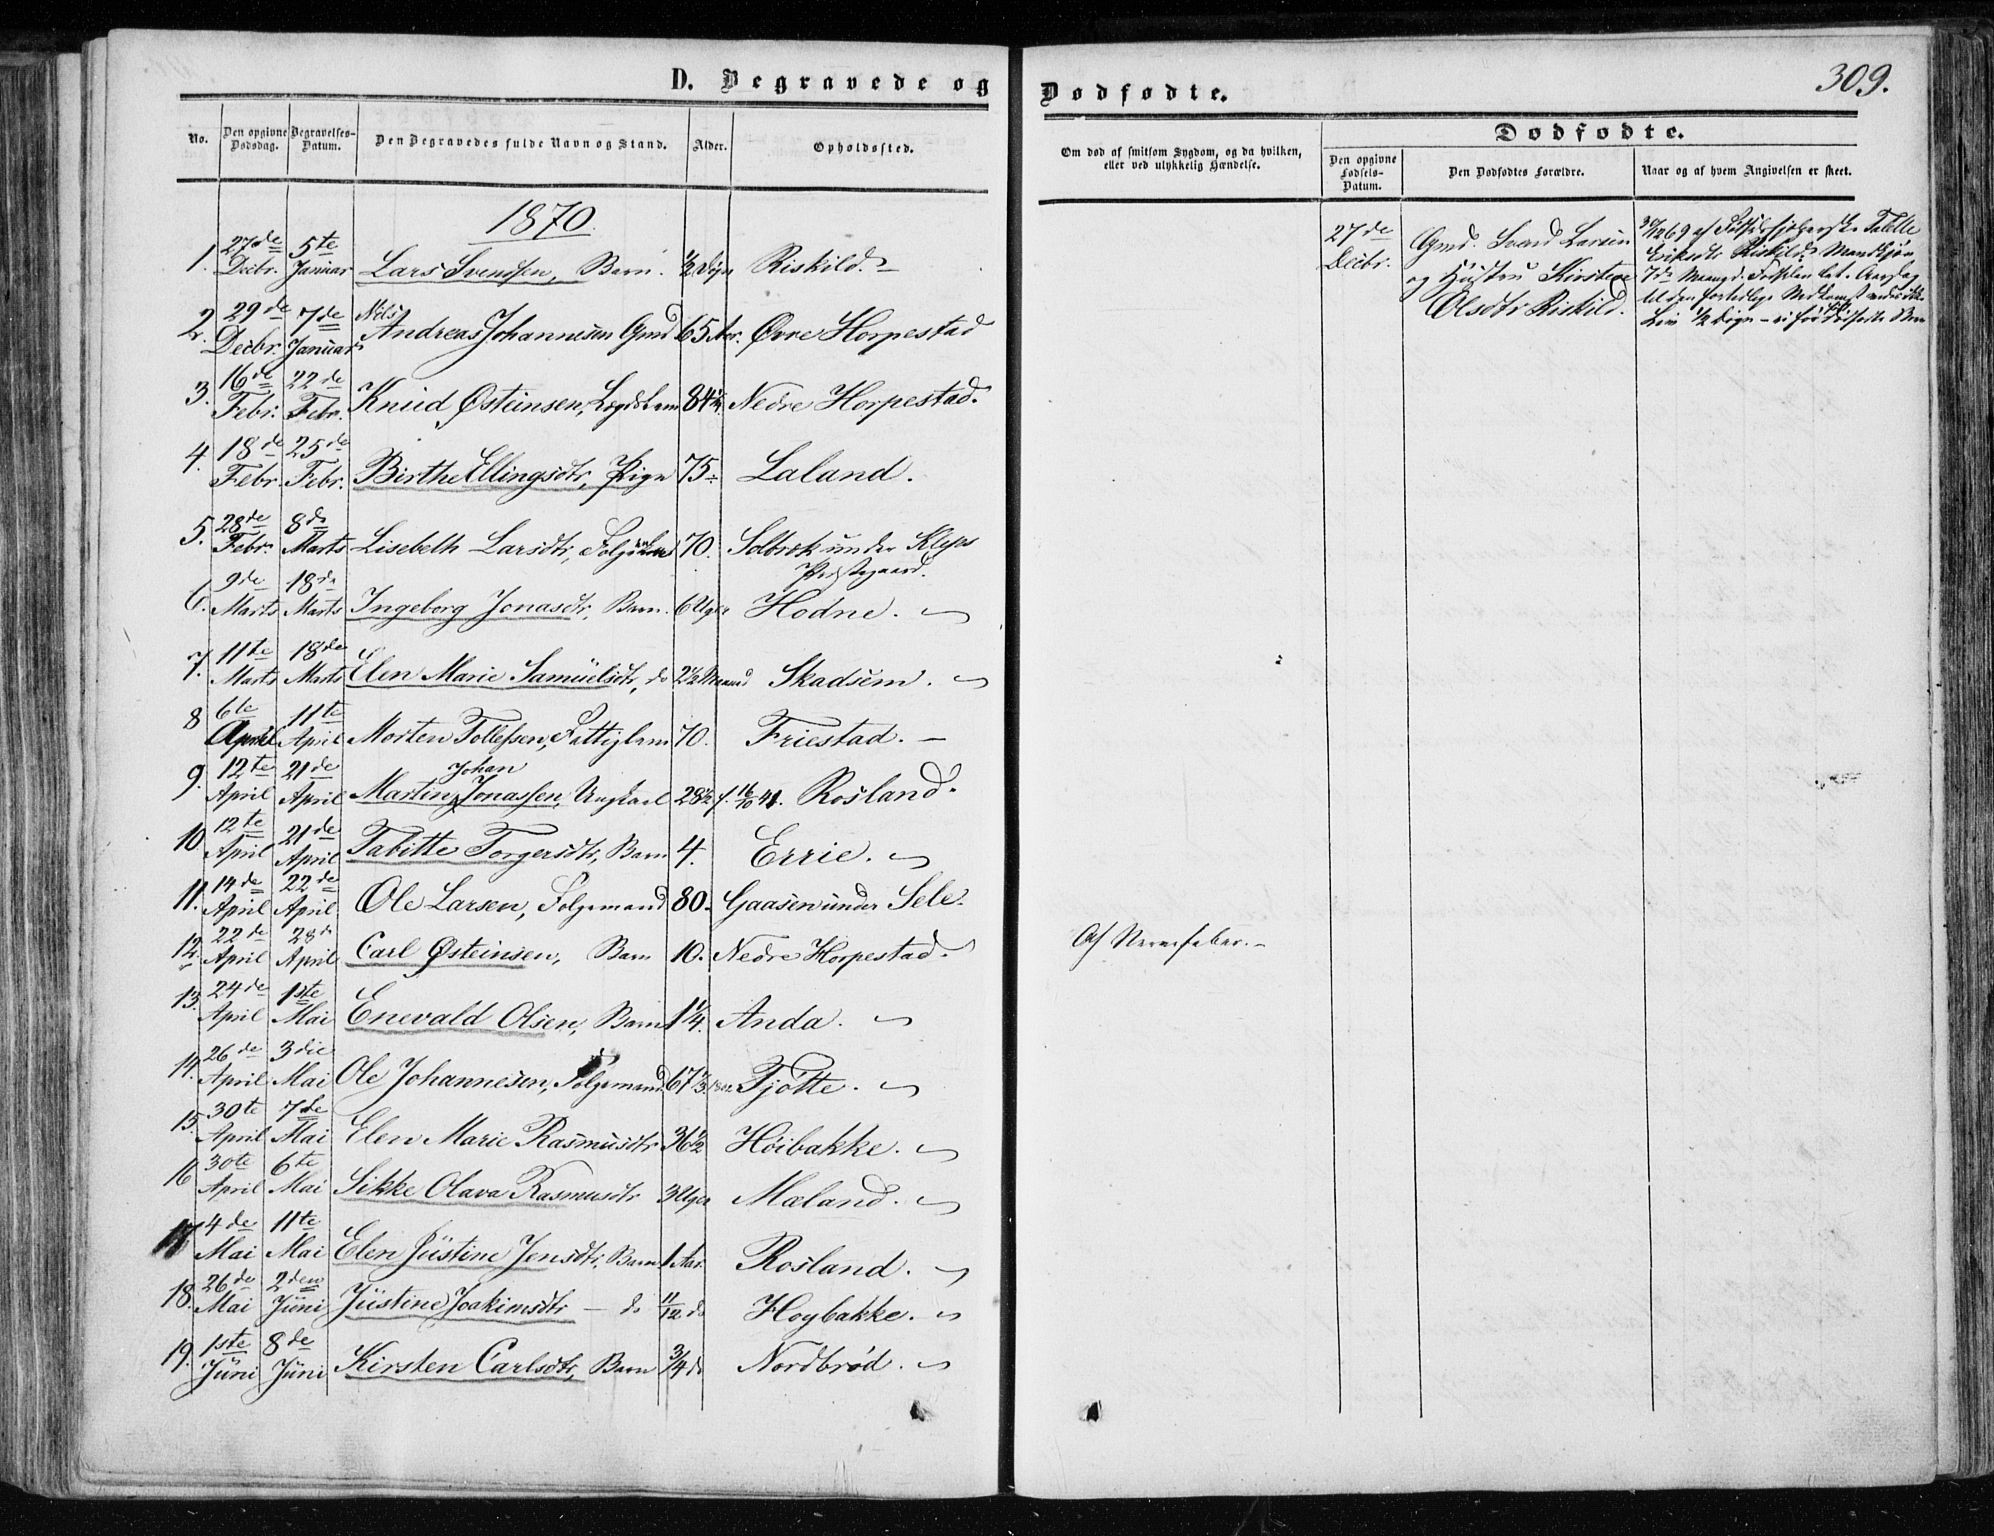 D. Begravede og
Dødfødte.
309.
No.
Den opgivne Dødsdag.
Begravelses-Datum.
Den Begravedes fulde Navn og Stand.
Alder.
Opholdssted.
Om død af smitsom Sygdom, og da hvilken,
eller ved ulykkelig Hændelse.
Dødfødte.
Den opgivne Fødsels-Datum.
Den Dødfødtes Forældre.
Naar og af hvem Angivelsen er skeet.
1870.
1. 27de Decbr. 5te Januar Lars Svendsen, Barn. ½ Døgn Riskild.
27de Decbr.
Gmd. Svend Larsen
og Hustru Kirstine
Olsdtr Riskild.
Eriksdtr Riskild. Mandkjøn
2. 29de Decbr. 7de Januar Nils Andreas Johannesen Gmd 65 Aar. Øvre Horpestad
3. 16de Febr. 22de Febr. Knud Østeinsen, Lægdslem 84 Nedre Horpestad.
4. 18de Febr. 25de Febr. Birthe Ellingsdtr, Pige 75 Laland.
5. 28de Febr. 8de Marts Lisebeth Larsdtr, 70. Solbrok under Klep
Præstegaard.
6. 9de Marts 18de Marts Ingeborg Jonasdtr, Barn. 6 Uger Hodne.
7. 11te Marts 18de Marts Elen Marie Samuelsdtr, do 2½ Maaned Skadsem.
8 6te April 11te April Morten Tollefsen, Fattiglem 70. Friestad.
9. 12te April 21de April Martin Johan Jonassen, Ungkarl 28½ f. 16/10 41. Rosland.
10. 12te April 21de April Tabitte Torgersdtr, Barn 4. Errie.
11. 14de April 22de April Ole Larsen, Folgemand 80. Gaasen under Sele.
12. 22de April 28de April Carl Østeinsen, Barn 10. Nedre Horpestad. Af Nervefeber.
13. 24de April 1ste Mai Enevald Olsen, Barn 1¼. Anda.
14. 26de April 3die Mai Ole Johannesen, Folgemand 67 Tjøtte.
15. 30te April 7de Mai Elen Marie Rasmusdtr 36½ Høibakke.
16 30te April 6te Mai Sikke Olava Rasmusdtr 3 Uger Mæland.
17 4de Mai 11te Mai Elen Justine Jensdtr, Barn 1 Aar. Rosland.
18. 26de Mai 2den Juni Justine Joakimsdtr – do 11/12 do Hoybakke.
19. 1ste Juni 8de Juni Kirsten Carlsdtr, Barn 3/4 do Nordbrød.